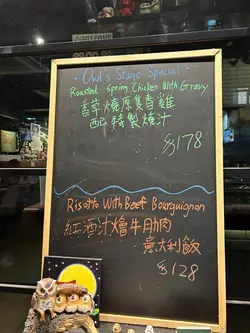 - Owl's Stage Special -
Roasted Spring Chicken With Gravy
香草燒原隻春雞
配特製燒汁
$178
Risotto With Beef Bourguignon
紅酒汁燴牛肋肉
意大利飯
$128